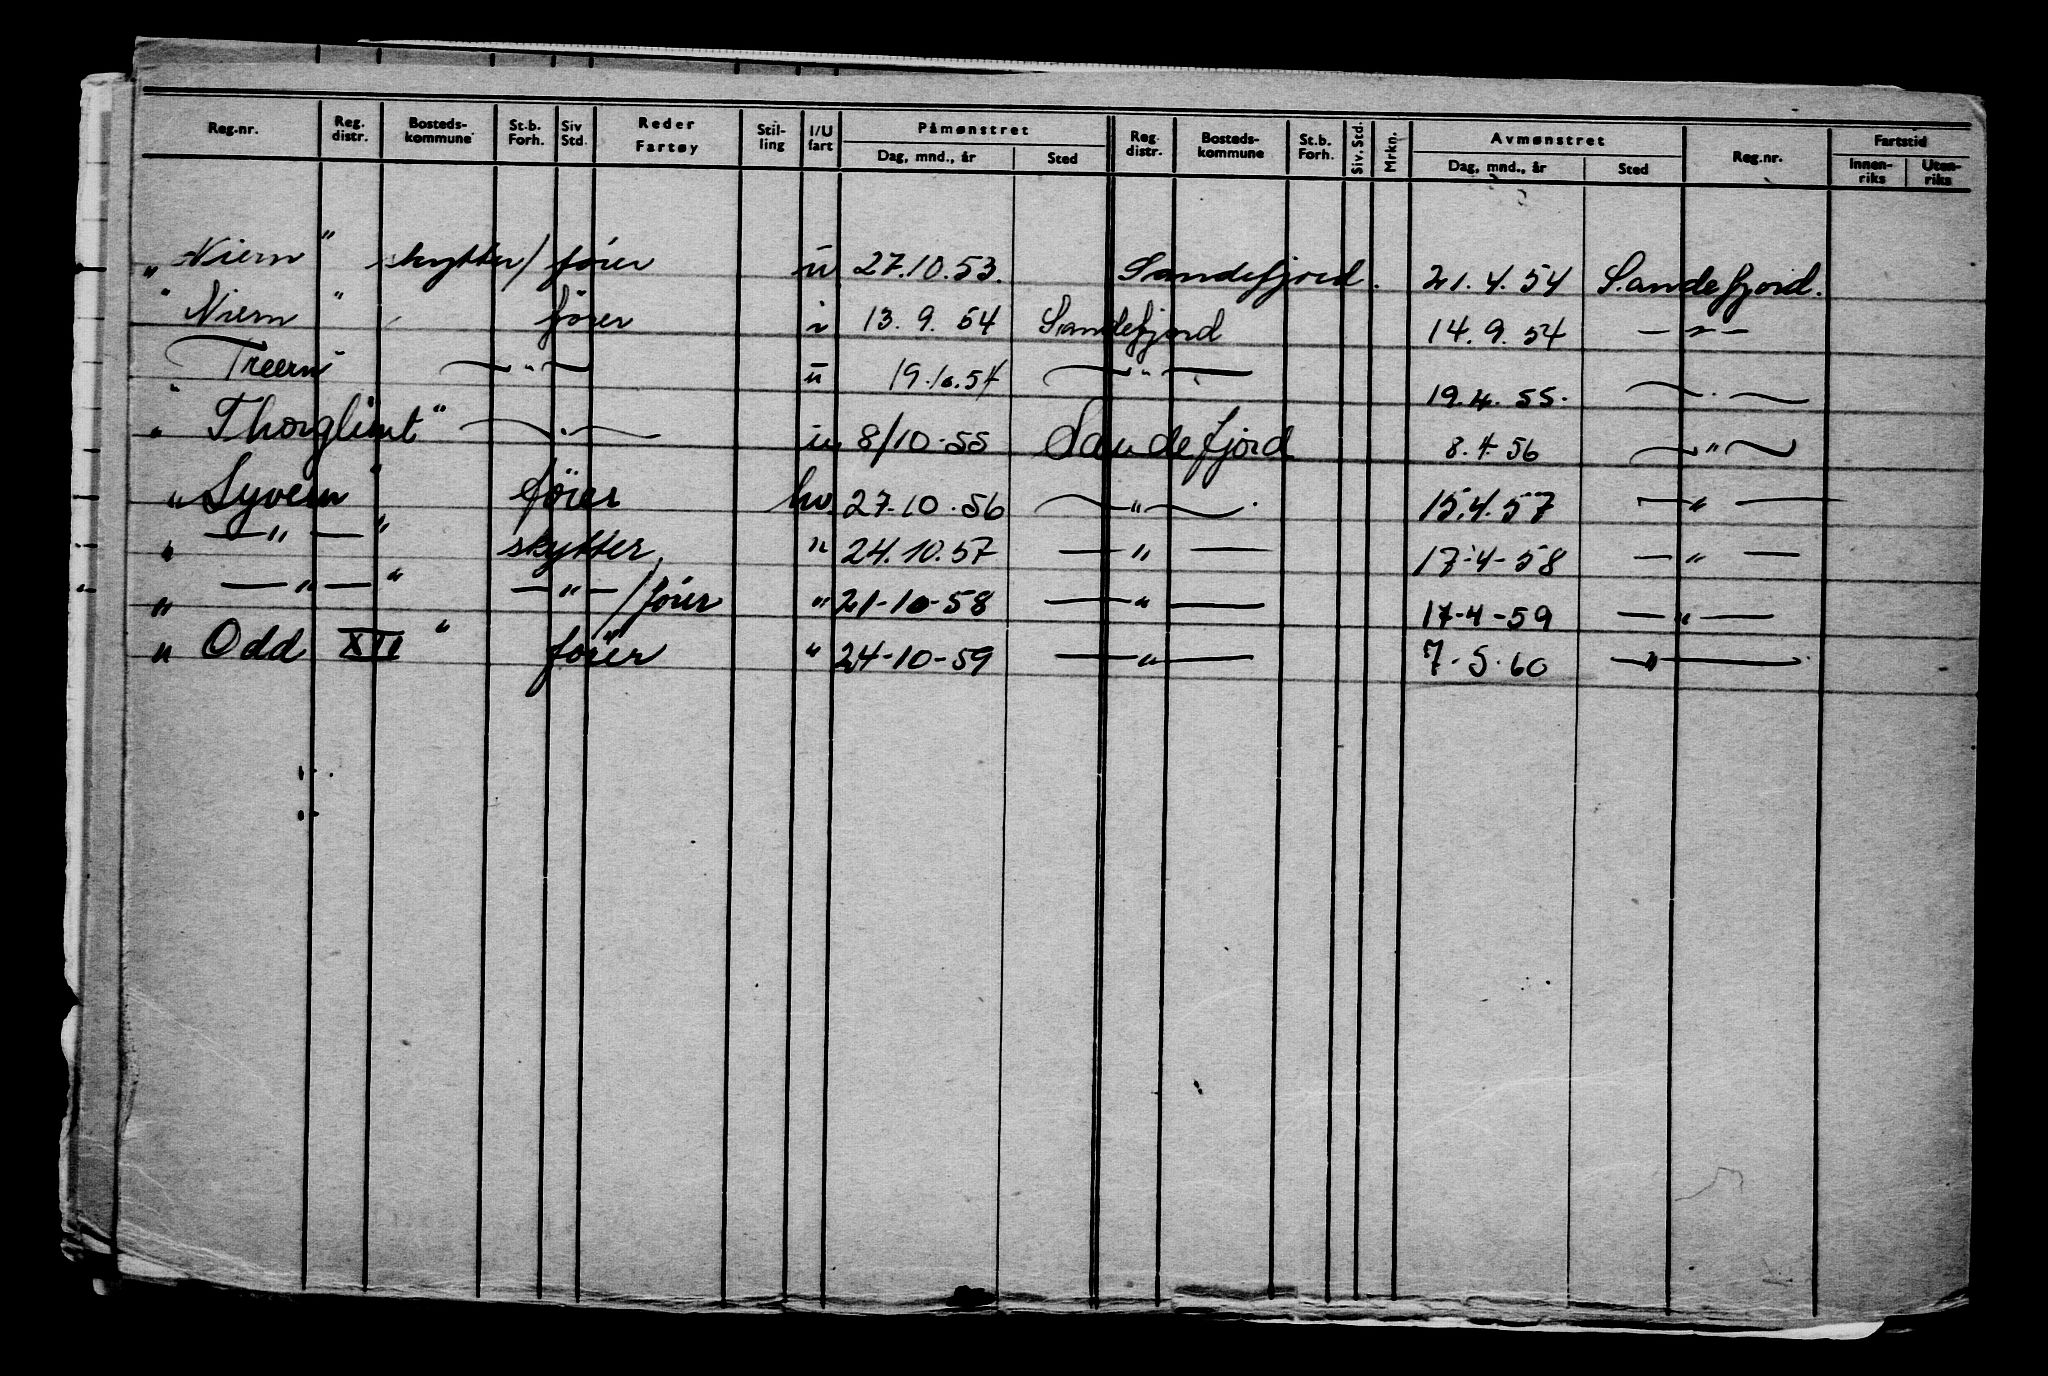 Reg.nr. Reg. distr. Bosteds- kommune St.b. Forh. Siv Std. Reder Fartøy Stil- ling I/U fart Påmønstret Dag, mnd., år Sted Reg. distr. Bosteds- kommune St.b. Forh. Siv. Std. Mrkn. Avmønstret Dag, mnd., år Sted Reg.nr. Fartstid Innen- riks Uten- riks
„ Niern " skytter / fører u 27.10.53. Sandefjord. 21.4.54 Sandefjord.
" Niern " fører i 13.9.54 Sandefjord 14.9.54 — " —
" Treern " — " — u 19.10.54 — " — 19.4.55. — " —
" Thorglimt " — " — u 8/10-55 Sandefjord 8.4.56 — " —
" Syvern " fører hv. 27.10.56 — " — 15.4.57 — " —
" — " — " skytter " 24.10.57 — " — 17-4-58 — " —
" — " — " — " — / fører " 21-10-58 — " — 17-4-59 — " —
" Odd XII " fører " 24-10-59 — " — 7-5-60 — " —